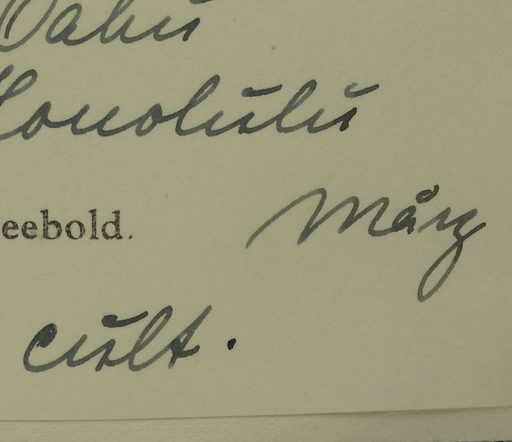 Oahu
Honolulu
eebold. März
cult.